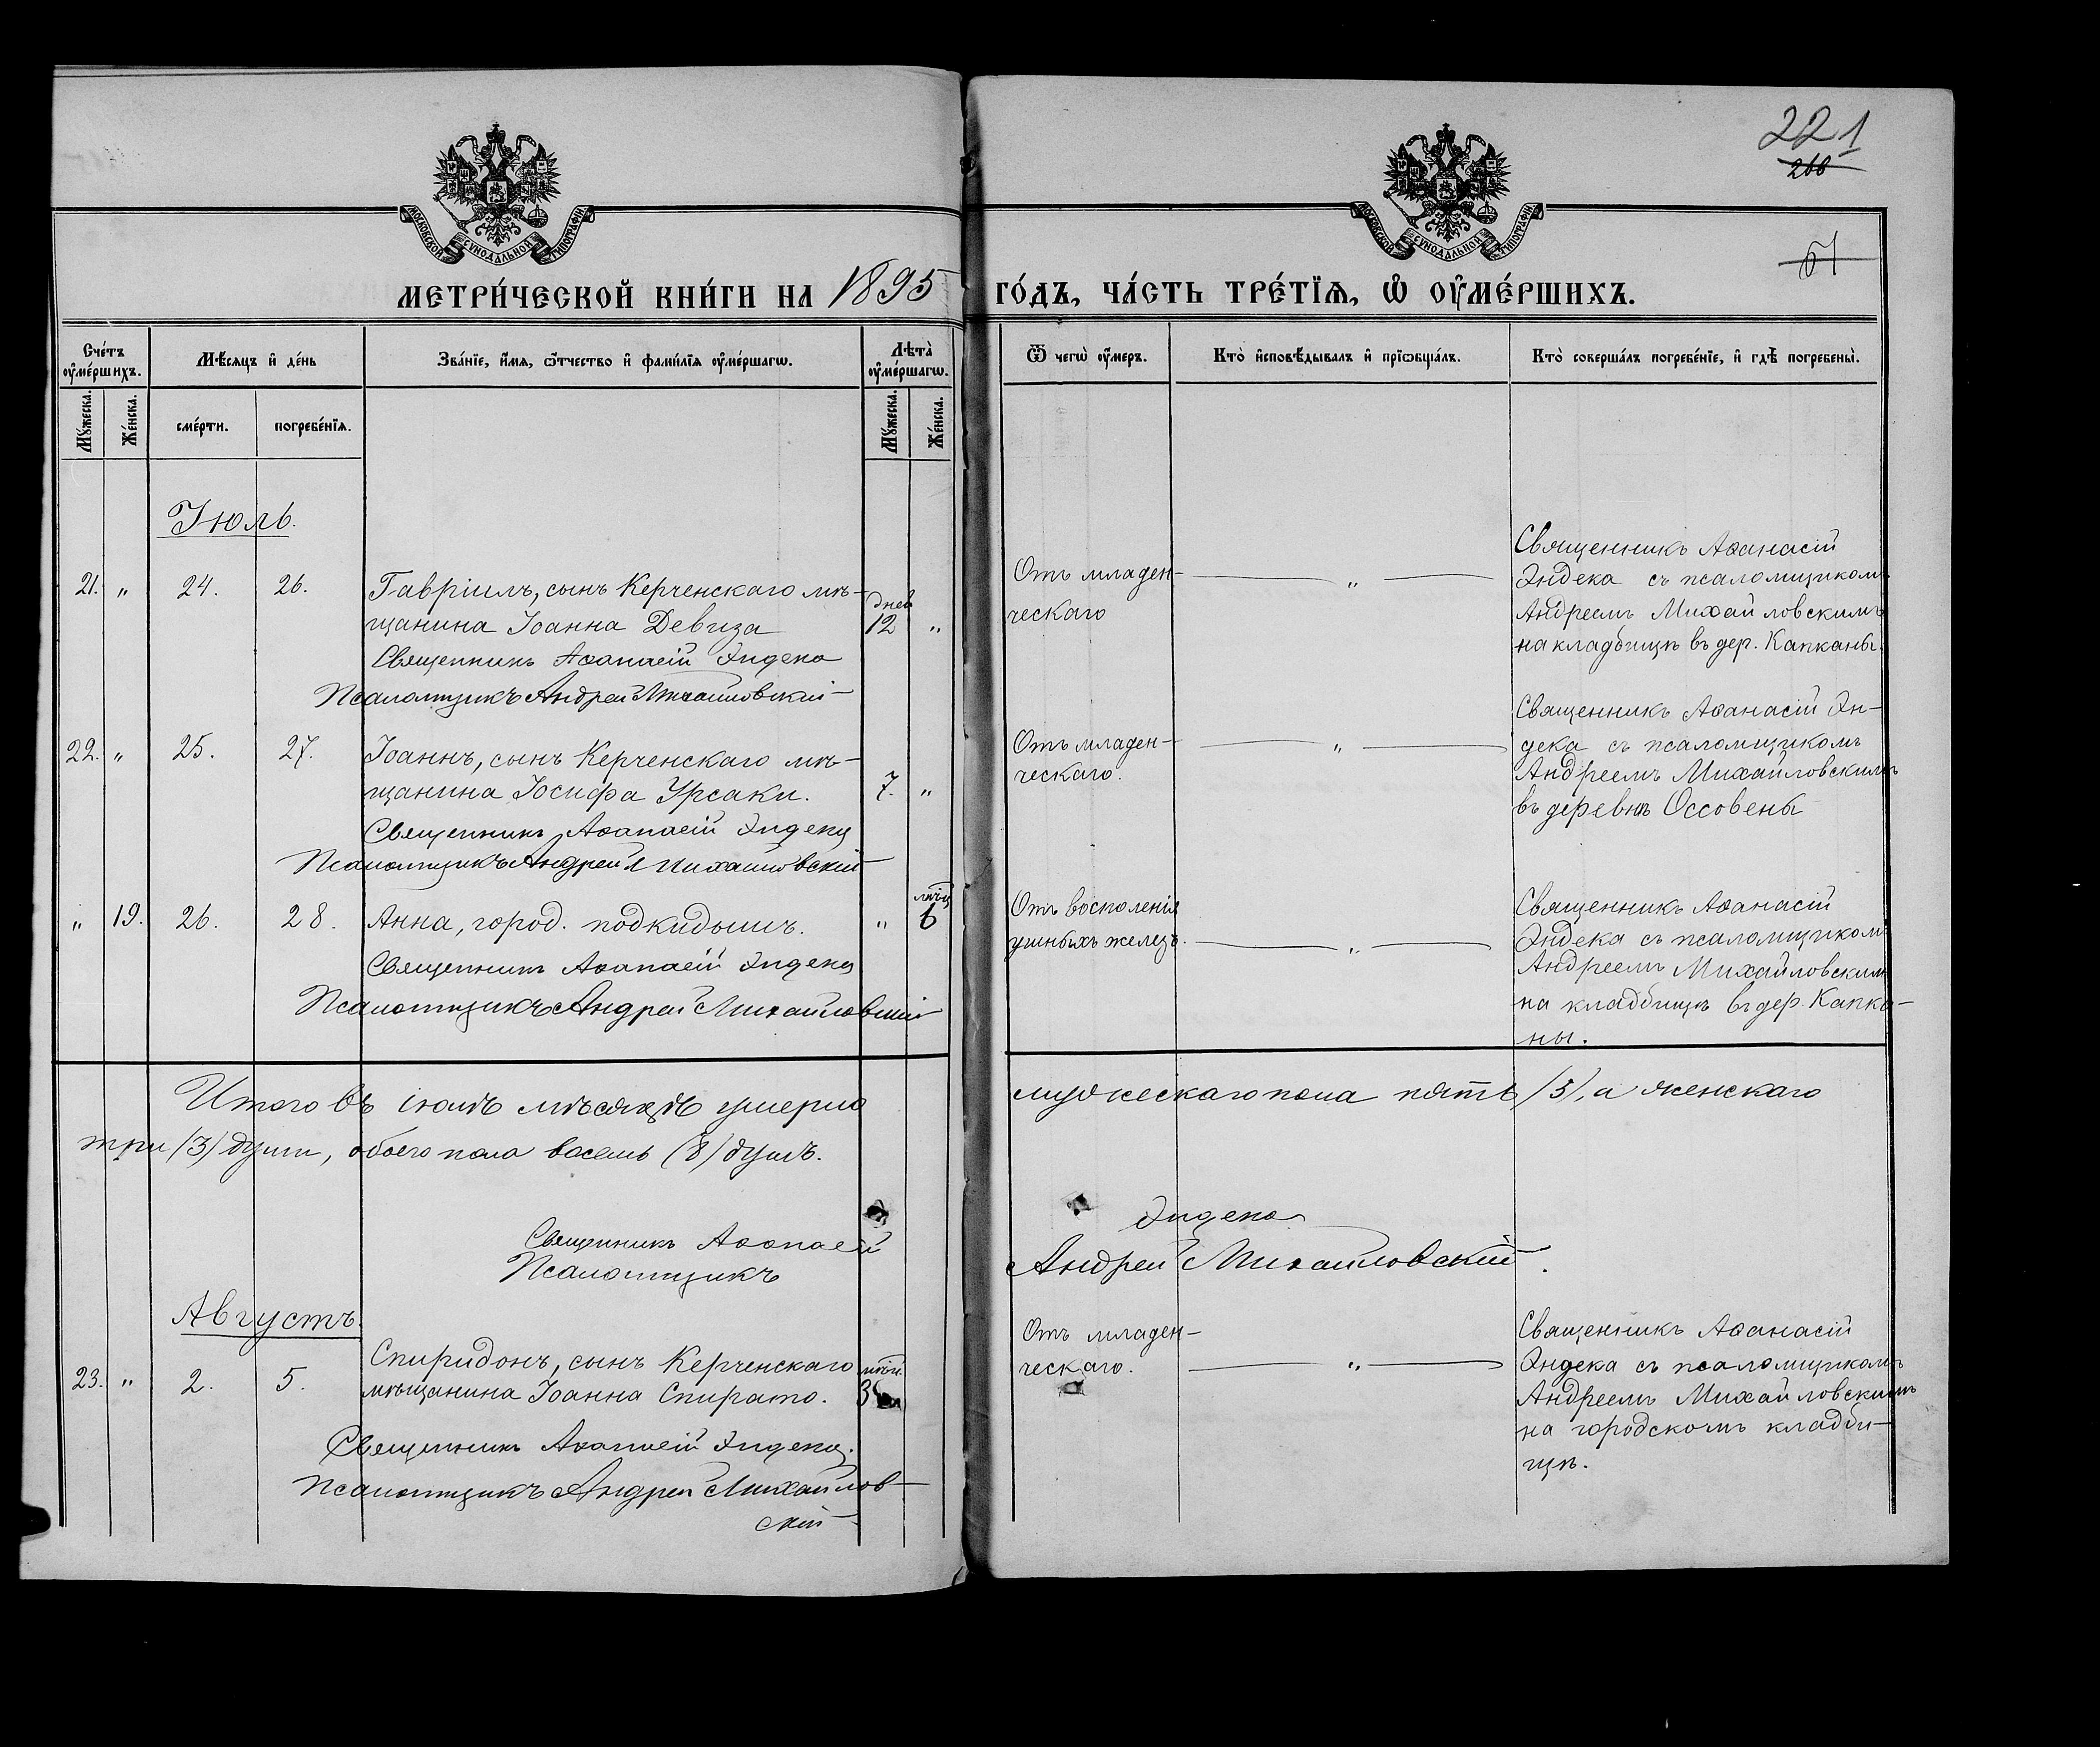 221
200
61
МОСКОВСКОЙ СѴНОДАЛЬНОЙ ТИПОГРАФІИ
МОСКОВСКОЙ СѴНОДАЛЬНОЙ ТИПОГРАФІИ
МЕТРИ́ЧЕСКОЙ КНИ́ГИ НА 1895 ГО́ДЪ, ЧА́СТЬ ТРЕ́ТІѦ, Ѡ҆ ОУ҆МЕ́РШИХЪ.
Сче́тъ оу҆ме́ршихъ.
Мѣ́сѧцъ и҆ де́нь
Зва́нїе, и҆́мѧ, ѻ҆́тчество и҆ фами́лїѧ оу҆ме́ршагѡ.
Лѣ́та оу҆ме́ршагѡ.
Ѿ чегѡ̀ оу҆́меръ.
Кто̀ и҆сповѣ́дывалъ и҆ прїѡбща́лъ.
Кто̀ соверша́лъ погребе́нїе, и҆ гдѣ̀ погребены̀.
Мꙋ́жеска. Же́нска. сме́рти. погребе́нїѧ. Мꙋ́жеска. Же́нска.
Іюль.
21. " 24. 26. Гавріилъ, сынъ Керченскаго мѣ-
щанина Іоанна Девиза
дней
12 "
Священникъ Аѳанасій Эндека
Псаломщикъ Андрей Михайловскій
Отъ младен-
ческаго
"
Священникъ Аѳанасій
Эндека съ псаломщикомъ
Андреемъ Михайловскимъ
на кладбищѣ въ дер. Капканы.
22. " 25. 27. Іоаннъ, сынъ Керченскаго мѣ-
щанина Іосифа Урсаки. 7. "
Священникъ Аѳанасій Эндека
Псаломщикъ Андрей Михайловскій
Отъ младен-
ческаго.
"
Священникъ Аѳанасій Эн-
дека съ псаломщикомъ
Андреемъ Михайловскимъ
въ деревнѣ Оссовены
" 19. 26. 28. Анна, город. подкидышъ. "
мѣц
6
Священникъ Аѳанасій Эндека
Псаломщикъ Андрей Михайловскій
Отъ восполенія
ушныхъ железъ.
"
Священникъ Аѳанасій
Эндека съ псаломщикомъ
Андреемъ Михайловскимъ
на кладбищѣ въ дер. Капка-
ны.
Итого въ іюлѣ мѣсяцѣ умерло мужескаго пола пять /5/, а женскаго
три /3/ души, обоего пола восемь (8) душъ.
Священникъ Аѳанасій Эндека
Псаломщикъ Андрей Михайловскій.
Августъ.
23. " 2. 5. Спиридонъ, сынъ Керченскаго
мѣщанина Іоанна Спирато.
3
Священникъ Аѳанасій Эндека.
Псаломщикъ Андрей Михайлов-
скій
Отъ младен-
ческаго.
"
Священникъ Аѳанасій
Эндека съ псаломщикомъ
Андреемъ Михайловскимъ
на городскомъ кладби-
щѣ.